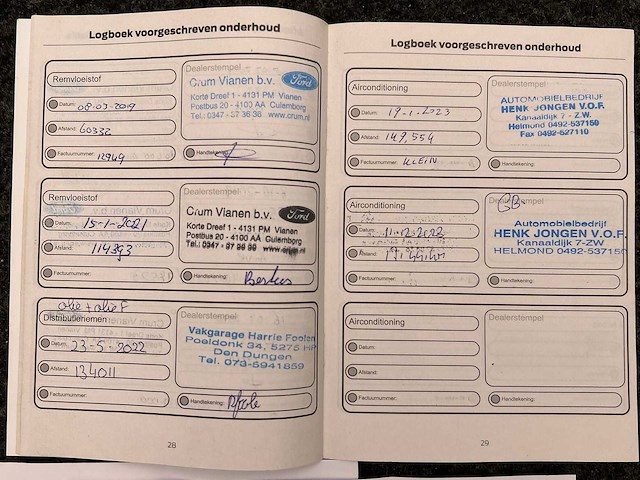 Logboek voorgeschreven onderhoud
Remvloeistof
Datum: 08-03-2019
Afstand: 60332
Factuurnummer: 12949
Dealerstempel
Crum Vianen b.v. Ford
Korte Dreef 1 - 4131 PM Vianen
Postbus 20 - 4100 AA Culemborg
Tel.: 0347 - 37 36 36 www.crum.nl
Handtekening:
Remvloeistof
Datum: 15-1-2021
Afstand: 114393
Factuurnummer:
Dealerstempel
Crum Vianen b.v. Ford
Korte Dreef 1 - 4131 PM Vianen
Postbus 20 - 4100 AA Culemborg
Tel.: 0347 - 37 36 36 www.crum.nl
Handtekening:
olie + olie F
Distributieriemen
Datum: 23-5-2022
Afstand: 134011
Factuurnummer:
Dealerstempel:
Vakgarage Harrie Footen
Poeldonk 34, 5275 HP
Den Dungen
Tel. 073-5941859
Handtekening:
28
Logboek voorgeschreven onderhoud
Airconditioning
Datum: 19-1-2023
Afstand: 149,554
Factuurnummer: KLEIN
Dealerstempel:
AUTOMOBIELBEDRIJF
HENK JONGEN V.O.F.
Kanaaldijk 7 - Z.W.
Helmond 0492-537150
Fax 0492-527110
Handtekening:
Airconditioning
Datum: 11-12-2023
Afstand:
Factuurnummer:
Dealerstempel:
Automobielbedrijf
HENK JONGEN V.O.F.
Kanaaldijk 7-ZW
HELMOND 0492-537150
Handtekening:
Airconditioning
Datum:
Afstand:
Factuurnummer:
Dealerstempel:
Handtekening:
29